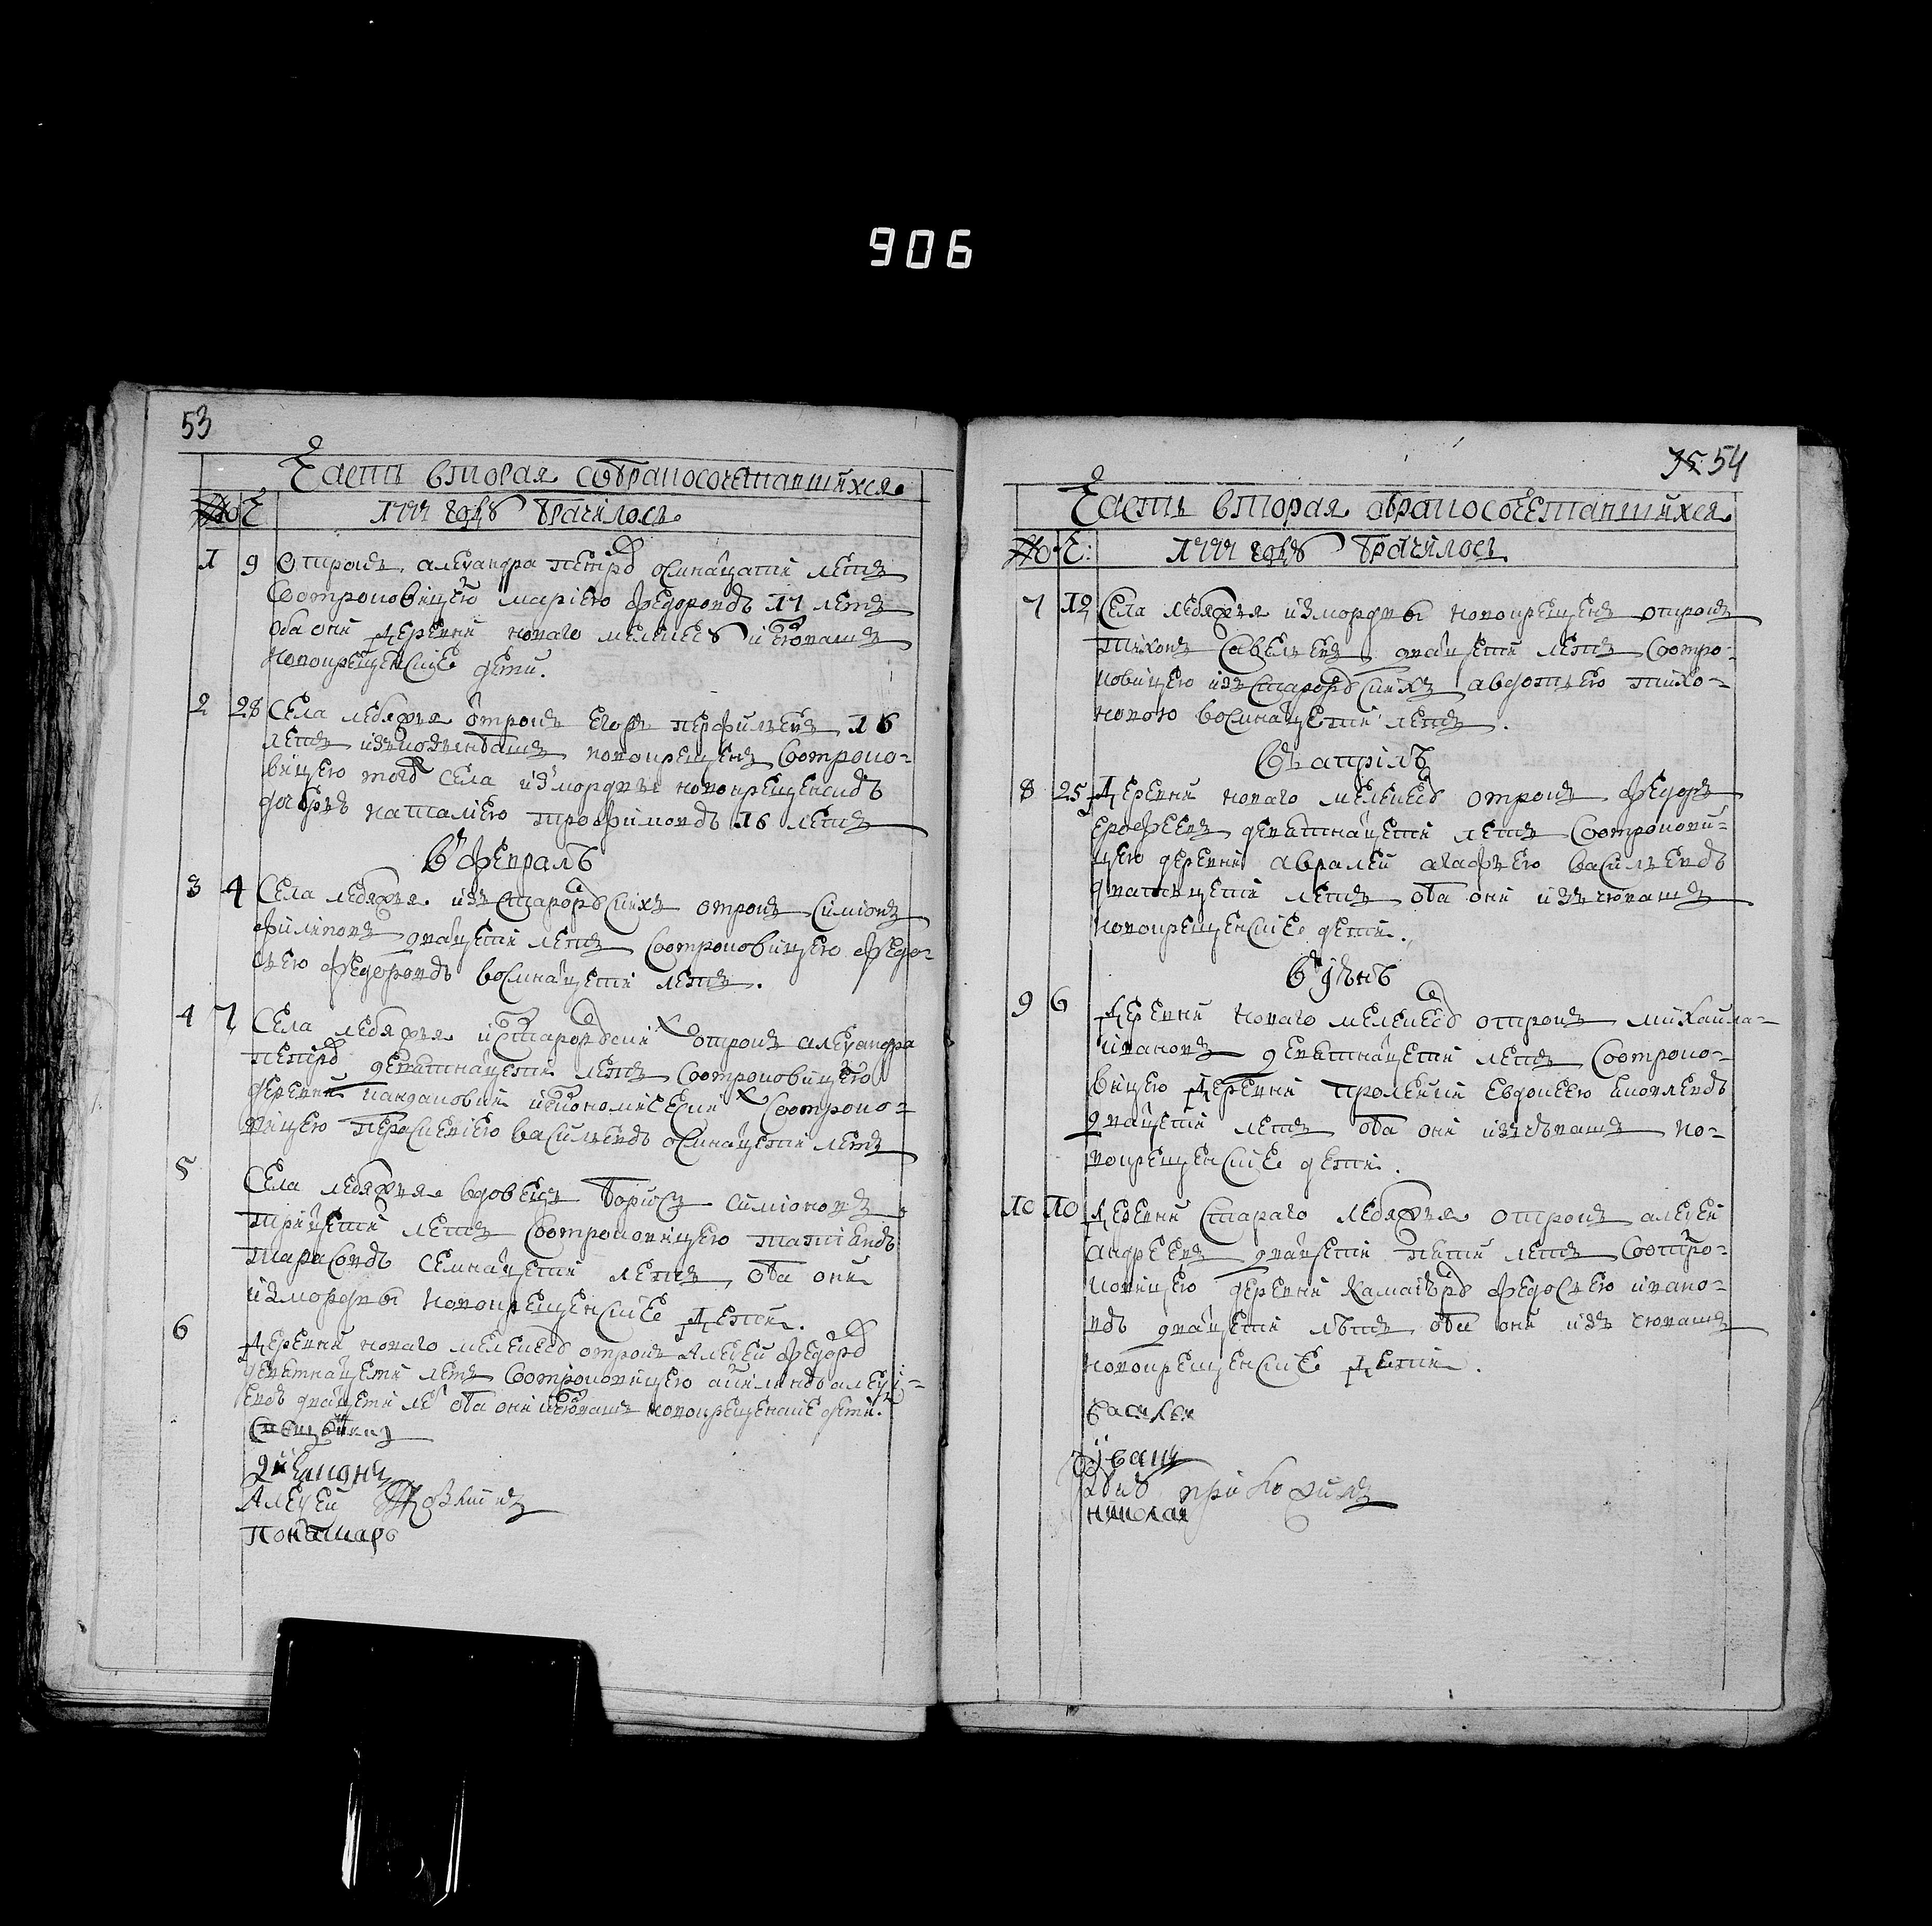 906
53
Часть вторая о бракосочетавшихся
1777 году Брачилось
1 9 Отрокъ алеѯандра петровъ осмнатцати летъ
Сотроковицею мариею федоровою 17 летъ
оба они деревни новаго мелекеса ис чювашъ
новокрещенские дети.
2 28 Села лебяжья отрокъ егоръ перфильевъ 16
летъ новокрещенъ Сотроко-
вицею того Села из мордвы новокрещенскою
дочерью наталиею трофимовою 16 летъ
в феврале
3 4 Села лебяжья из старорусскихъ отрокъ Симионъ
филиповъ двацети летъ Сотроковицею федо-
сьею федоровою восмнацети летъ.
4 7 Села лебяжья ис старорусских отрокъ алеѯандра
петровъ деветнацети летъ Сотроковицею
деревни Сотроко-
вицею васильевою осмнацети летъ
5 Села лебяжья вдовецъ Борисъ симионовъ
трицети летъ Сотроковицею татианою
тарасовою семнацети летъ оба они
из мордвы новокрещенские дети.
6 Деревни новаго мелекеса отрокъ алеѯей федоровъ
деветнацети летъ Сотроковицею акилиною алеѯи-
евою двацети ле оба они ис чювашъ новокрещенские дети.
Священникъ
Диаконъ
Алеѯей
Понамарь
54
Часть вторая о бракосочетавшихся
1777 году Брачилось
7 12 Села лебяжья из мордвы новокрещенъ отрокъ
тихонъ савельевъ двацети летъ Сотро-
ковицею из старорусскихъ авдотьею тихо-
новою восмнацети летъ.
Въ априлѣ
8 25 Деревни новаго мелекеса отрокъ федоръ
ерофеевъ деветнацети летъ Сотрокови-
цею деревни авралей агафьею васильевою
дватцети летъ оба они изъ чювашъ
новокрещенские дети.
В июнѣ
9 6 Деревни новаго мелекеса отрокъ михаила
ивановъ деветнацети летъ Сотроко-
вицею деревни евдокеею
двацети летъ оба они изъ чювашъ но-
вокрещенские дети.
10 10 Деревни Стараго лебяжья отрокъ алеѯей
андреевъ двацети пети летъ Сотро-
ковицею деревни федосьею ивано-
вою двацети лѣтъ оба они изъ чювашъ
новокрещенские дети.
Василеи
Иванъ
руку приложилъ
николаи